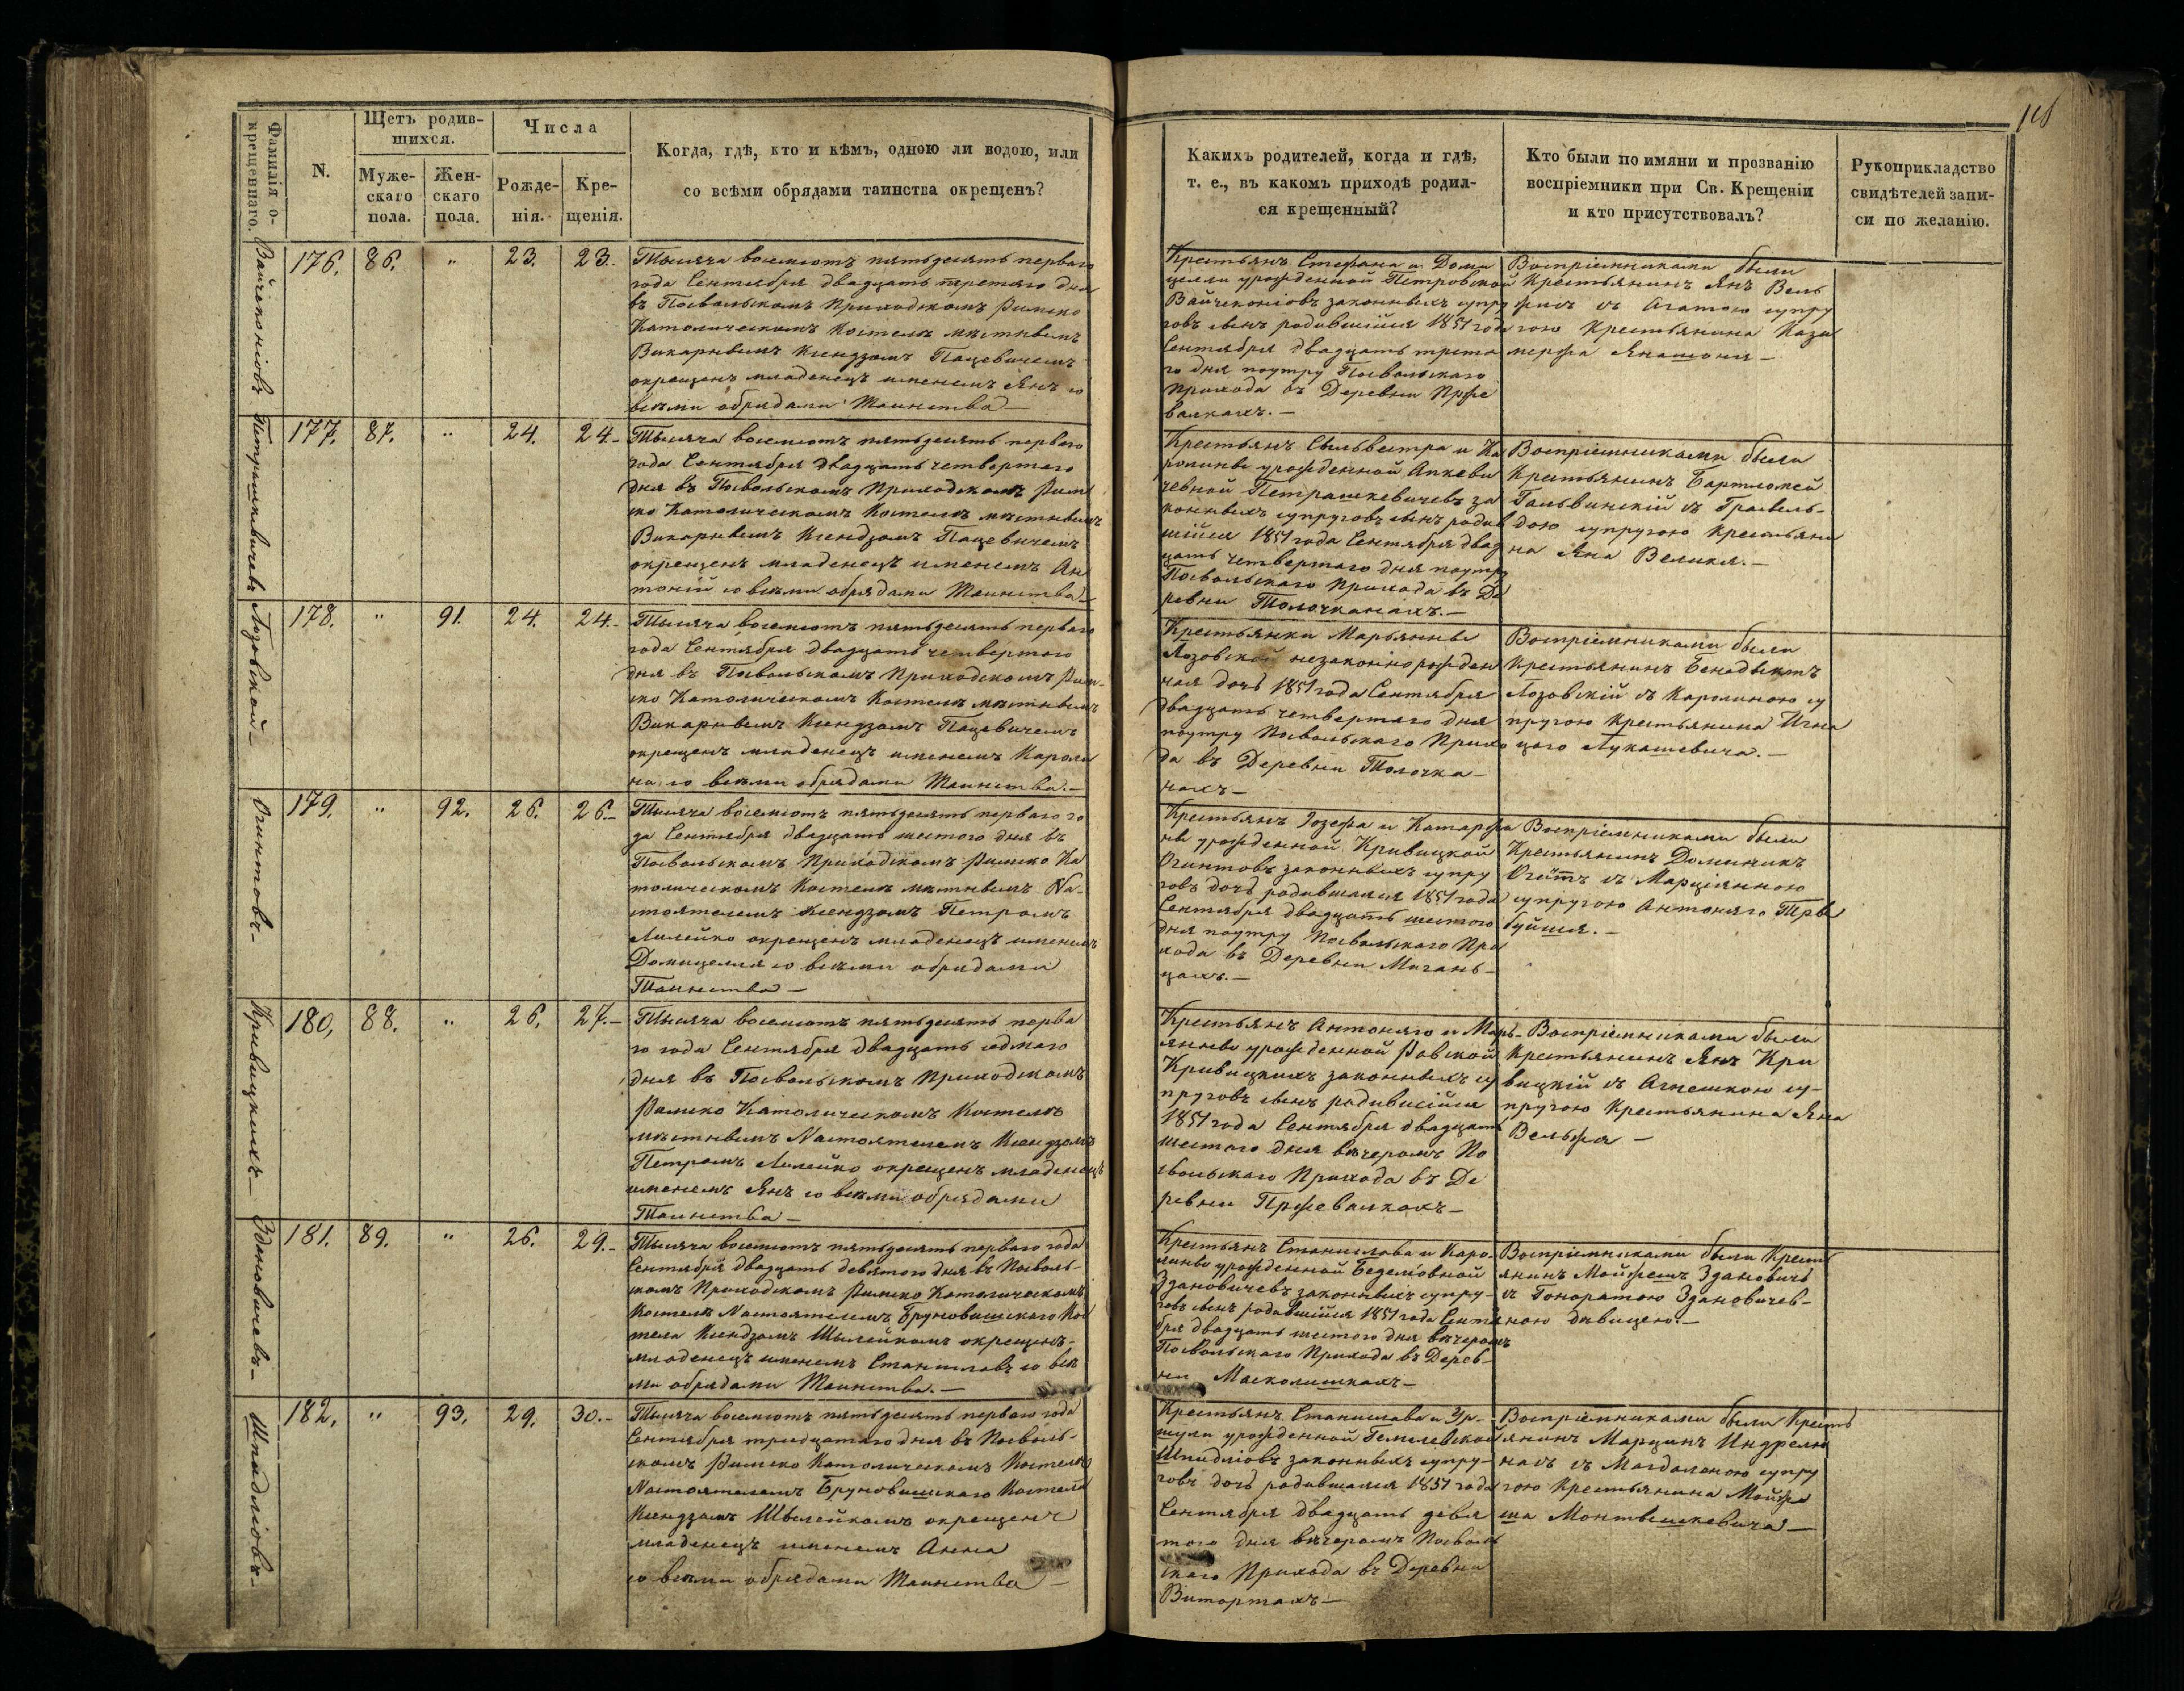 118
Фамилія о-
крещеннаго.
N.
Щетъ родив-
шихся.
Муже-
скаго
пола.
Жен-
скаго
пола.
Числа
Рожде-
нія.
Кре-
щенія.
Когда, гдѣ, кто и кѣмъ, одною ли водою, или
со всѣми обрядами таинства окрещенъ?
Какихъ родителей, когда и гдѣ,
т. е., въ какомъ приходѣ родил-
ся крещенный?
Кто были по имяни и прозванію
воспріемники при Св. Крещеніи
и кто присутствовалъ?
Рукоприкладство
свидѣтелей запи-
си по желанію.
Вайчеконіовъ
176. 86. " 23. 23.
Тысяча восемсотъ пятьдесятъ перваго
года Сентября двадцать третяго дня
въ Посвольскомъ Приходскомъ Римско
Католическомъ Костелѣ мѣстнымъ
Викарнымъ Ксендзомъ Пацевичемъ
окрещенъ младенецъ именемъ Янъ со
всѣми обрядами Таинства —
Крестьянъ Стефана и Доми
целли урожденной Петровской
Вайчеконіовъ законныхъ супру
говъ сынъ родившійся 1851 года
Сентября двадцать третя
го дня поутру Посвольскаго
Прихода въ Деревни Прже
валкахъ. —
Воспріемниками были
Крестьянинъ Янъ Вель
жисъ съ Агатою супру
гою Крестьянина Кази
мержа Янатоня —
Петрашкевичевъ
177. 87. " 24. 24.-
Тысяча восемсотъ пятьдесятъ перваго
года Сентября двадцать четвертаго
дня въ Посвольскомъ Приходскомъ Рим
ско Католическомъ Костелѣ мѣстнымъ
Викарнымъ Ксендзомъ Пацевичемъ
окрещенъ младенецъ именемъ Ан
тоній со всѣми обрядами Таинства —
Крестьянъ Сыльвестра и Ка
ролины урожденной Апкеви
чевной Петрашкевичевъ за
конныхъ супруговъ сынъ родив
шійся 1851 года Сентября двад
цать четвертаго дня поутру
Посвольскаго Прихода въ Де
ревни Толочканахъ. —
Воспріемниками были
Крестьянинъ Бартломей
Гальвинскій съ
дою супругою Крестьяни
на Яна Великя. —
Лозовской —
178. " 91. 24. 24.-
Тысяча восемсотъ пятьдесятъ перваго
года Сентября двадцать четвертаго
дня въ Посвольскомъ Приходскомъ Рим-
ско Католическомъ Костелѣ мѣстнымъ
Викарнымъ Ксендзомъ Пацевичемъ
окрещенъ младенецъ именемъ Кароли
на со всѣми обрядами Таинства. —
Крестьянки Марьянны
Лозовской незаконнорожден
ная дочь 1851 года Сентября
двадцать четвертаго дня
поутру Посвольскаго Прихо
да въ Деревни Толочка-
нахъ —
Воспріемниками были
Крестьянинъ Бенадыктъ
Лозовскій съ Каролиною су
пругою Крестьянина Игна
цаго Лукашевича. —
Огинтовъ. —
179. " 92. 26. 26.-
Тысяча восемсотъ пятьдесятъ перваго го
да Сентября двадцать шестого дня въ
Посвольскомъ Приходскомъ Римско Ка
толическомъ Костелѣ мѣстнымъ На-
стоятелемъ Ксендзомъ Петромъ
Лилейко окрещенъ младенецъ именемъ
Домицелля со всѣми обрядами
Таинства —
Крестьянъ Іозефа и Катаржи
ны урожденной Кривицкой
Огинтовъ законныхъ супру
говъ дочь родившаяся 1851 года
Сентября двадцать шестого
дня поутру Посвольскаго При
хода въ Деревни Мигань-
цахъ. —
Воспріемниками были
Крестьянинъ Доминикъ
Огинтъ съ Марціянною
супругою Антоняго Тры
буйшя. —
Кривицкихъ —
180. 88. " 26. 27.-
Тысяча восемсотъ пятьдесятъ перва
го года Сентября двадцать седмаго
дня въ Посвольскомъ Приходскомъ
Римско Католическомъ Костелѣ
мѣстнымъ Настоятелемъ Ксендзомъ
Петромъ Лилейко окрещенъ младенецъ
именемъ Янъ со всѣми обрядами
Таинства —
Крестьянъ Антоняго и Марь-
янны урожденной Равской
Кривицкихъ законныхъ су
пруговъ сынъ родившійся
1851 года Сентября двадцать
шестаго дня вѣчеромъ По
свольскаго Прихода въ Де
ревни Пржевалкахъ —
Воспріемниками были
Крестьянинъ Янъ Кри
вицкій съ Агнешкою су-
пругою Крестьянина Яна
Вельжя —
Здановичевъ. —
181. 89. " 26. 29.-
Тысяча восемсотъ пятьдесятъ перваго года
Сентября двадцать девятого дня въ Посволь-
скомъ Приходскомъ Римско Католическомъ
Костелѣ Настоятелемъ Бруновишскаго Кос
тела Ксендзомъ Шылейкомъ окрещенъ-
младенецъ именемъ Станиславъ со всѣ
ми обрядами Таинства. —
Крестьянъ Станислава и Каро-
лины урожденной
Здановичевъ законныхъ супру-
говъ сынъ родившійся 1851 года Сентя
бря двадцать шестого дня вѣчеромъ
Посвольскаго Прихода въ Дерев-
ни Масколишкахъ —
Воспріемниками были Кресть
янинъ Мойжешъ Здановичъ
съ Гоноратою Здановичев-
ною дѣвицею. —
Шпадліовъ. —
182. " 93. 29. 30.-
Тысяча восемсотъ пятьдесятъ перваго года
Сентября тридцатаго дня въ Посволь-
скомъ Римско Католическомъ Костелѣ
Настоятелемъ Бруновишскаго Костела
Ксендзомъ Шылейкомъ окрещенъ
младенецъ именемъ Анна
со всѣми обрядами Таинства —
Крестьянъ Станислава и Ур-
шули урожденной
законныхъ супру-
говъ дочь родившаяся 1851 года
Сентября двадцать девя
того дня вѣчеромъ Посволь
скаго Прихода въ Деревни
Витортахъ —
Воспріемниками были Кресть
янинъ Марцинъ Индрелю
насъ съ Магдаленою супру
гою Крестьянина Мойже
ша Монтышкевича —